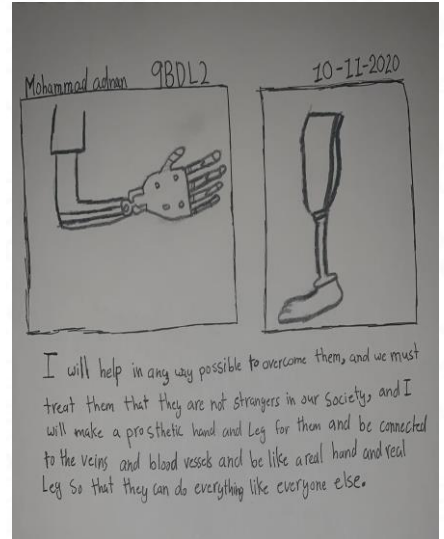 Mohammad adnan 9BDL2 10-11-2020
I will help in any way possible to overcome them, and we must
treat them that they are not strangers in our society, and I
will make a prosthetic hand and Leg for them and be connected
to the veins and blood vessels and be like a real hand and real
Leg So that they can do everything like everyone else.